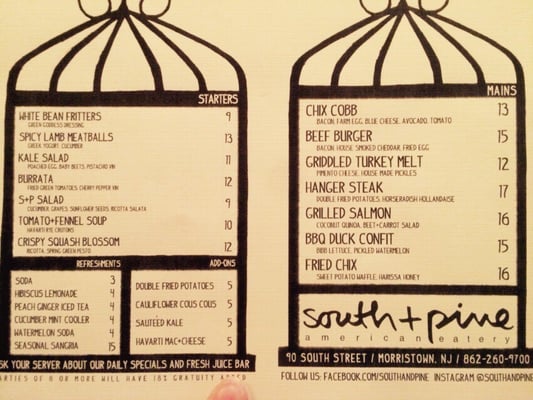 STARTERS
WHITE BEAN FRITTERS 9
GREEN GODDESS DRESSING
SPICY LAMB MEATBALLS 13
GREEK YOGURT, CUCUMBER
KALE SALAD 11
POACHED EGG, BABY BEETS, PISTACHIO VIN
BURRATA 12
FRIED GREEN TOMATOES, CHERRY PEPPER VIN
S+P SALAD 9
CUCUMBER, GRAPES, SUNFLOWER SEEDS, RICOTTA SALATA
TOMATO+FENNEL SOUP 10
HAVARTI RYE CROUTONS
CRISPY SQUASH BLOSSOM 12
RICOTTA, SPRING GREEN PESTO
REFRESHMENTS
SODA 3
HIBISCUS LEMONADE 4
PEACH GINGER ICED TEA 4
CUCUMBER MINT COOLER 4
WATERMELON SODA 4
SEASONAL SANGRIA 15
ADD-ONS
DOUBLE FRIED POTATOES 5
CAULIFLOWER COUS COUS 5
SAUTÉED KALE 5
HAVARTI MAC+CHEESE 5
SK YOUR SERVER ABOUT OUR DAILY SPECIALS AND FRESH JUICE BAR
ARTIES OF 6 OR MORE WILL HAVE 18% GRATUITY ADDED
MAINS
CHIX COBB 13
BACON, FARM EGG, BLUE CHEESE, AVOCADO, TOMATO
BEEF BURGER 15
BACON, HOUSE SMOKED CHEDDAR, FRIED EGG
GRIDDLED TURKEY MELT 12
PIMENTO CHEESE, HOUSE MADE PICKLES
HANGER STEAK 17
DOUBLE FRIED POTATOES, HORSERADISH HOLLANDAISE
GRILLED SALMON 16
COCONUT QUINOA, BEET+CARROT SALAD
BBQ DUCK CONFIT 15
BIBB LETTUCE, PICKLED WATERMELON
FRIED CHIX 16
SWEET POTATO WAFFLE, HARISSA HONEY
south+pine
american eatery
90 SOUTH STREET / MORRISTOWN, NJ / 862-260-9700
FOLLOW US: FACEBOOK.COM/SOUTHANDPINE INSTAGRAM @SOUTHANDPINE